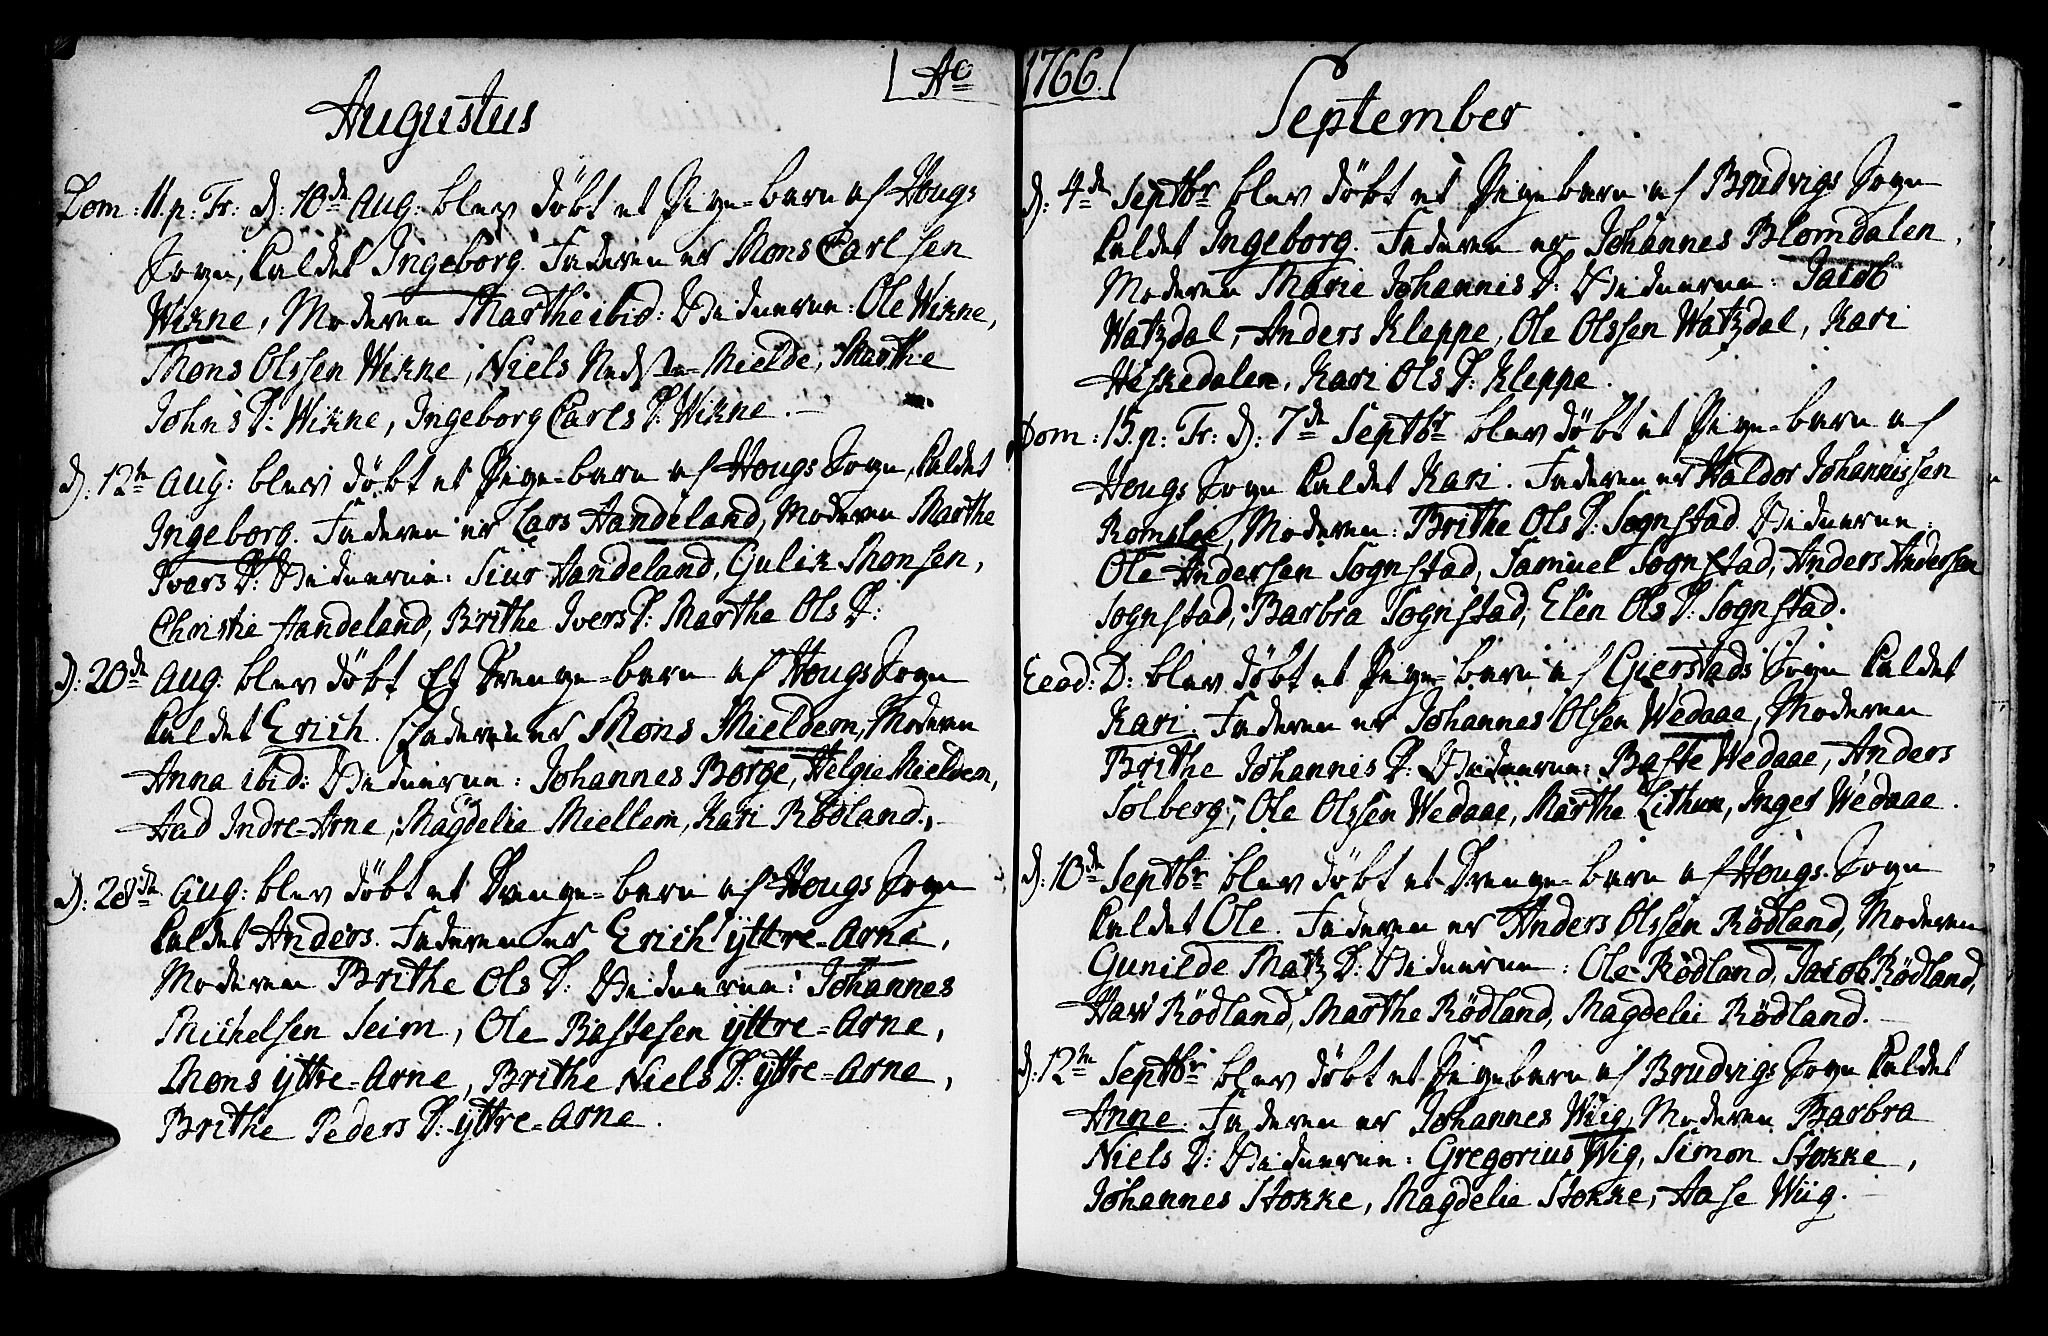 Ao
Augustus
Dom: 11. p: Tr: d: 10de Aug: blev døbt et Pige-barn af Hougs
Sogn, kaldet Ingeborg. Faderen er Mons Carlsen
Wikne, Moderen Marthe ibid: Vidnerne: Ole Wikne,
Mons Olssen Wikne, Niels Nedste-Mielde, Marthe
Johns D: Wikne, Ingeborg Carls D: Wikne.
d: 12te Aug: blev døbt et Pige-barn af Hougs Sogn, kaldet
Ingeborg. Faderen er Lars Handeland, Moderen Marthe
Ivars D: Vidnerne: Siur Handeland, Gulik Monsen,
Christie Handeland, Brithe Ivers D: Marthe Ols D:
d: 20de Aug: blev døbt Et Drenge-barn af Hougs Sogn
kaldet Erich. Faderen er Mons Mieldem, Moderen
Anna ibid: Vidnerne: Johannes Borge, Helgie Mieldem,
Aad Indre-Arne, Magdelie Miellem, Kari Rødland.
d: 28de Aug: blev døbt et Drenge-barn af Hougs Sogn
kaldet Anders. Faderen er Erich yttre-Arne,
Moderen Brithe Ols D: Vidnerne: Johannes
Michelsen Seim, Ole Bastesen yttre-Arne,
Mons yttre-Arne, Brithe Niels D: yttre-Arne,
Brithe Peders D: yttre-Arne.
1766.
September
d: 4de Septbr blev døbt et Pigebarn af Brudvigs Sogn
kaldet Ingeborg. Faderen er Johannes Blomdalen,
Moderen Marie Johannis D: Vidnerne: Jacob
Watzdal, Anders Kleppe, Ole Olssen Watzdal, Kari
Heskedalen, Kari Ols D: Kleppe.
Dom: 15. p: Tr: d: 7de Septbr blev døbt et Pige-barn af
Hougs Sogn kaldet Kari. Faderen er Haldor Johannissen
Romsloe, Moderen: Brithe Ols D: Sognstad. Vidnerne:
Ole Andersen Sognstad, Samuel Sognstad, Anders Andersen
Sognstad, Barbra Sognstad, Elen Ols D: Sognstad.
Eeod: D: blev døbt et Pige-barn af Gierstads Sogn kaldet
Kari. Faderen er Johannes Olssen Wedaae, Moderen
Brithe Johannis D: Vidnerne: Baste Wedaae, Anders
Solberg, Ole Olssen Wedaae, Marthe Lithun, Inger Wedaae.
d: 10de Septbr blev døbt et Drenge-barn af Hougs Sogn
kaldet Ole. Faderen er Anders Olssen Rødland, Moderen
Gunilde Matz D: Vidnerne: Ole Rødland, Jacob Rødland,
Haw Rødland, Marthe Rødland, Magdeli Rødland.
d: 12te Septbr blev døbt et Pigebarn af Brudvigs Sogn kaldet
Anne. Faderen er Johannes Wiig, Moderen Barbra
Niels D: Vidnerne: Gregorius Wig, Simon Stokke,
Johannes Stokke, Magdelie Stokke, Aase Wiig.